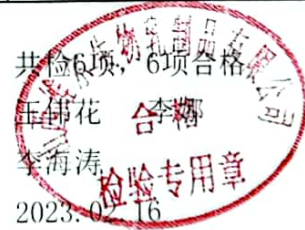 共检6项，6项合格
王伟花 李娜
李海涛
2023.02.16
生物乳制品有限公司
合格
检验专用章